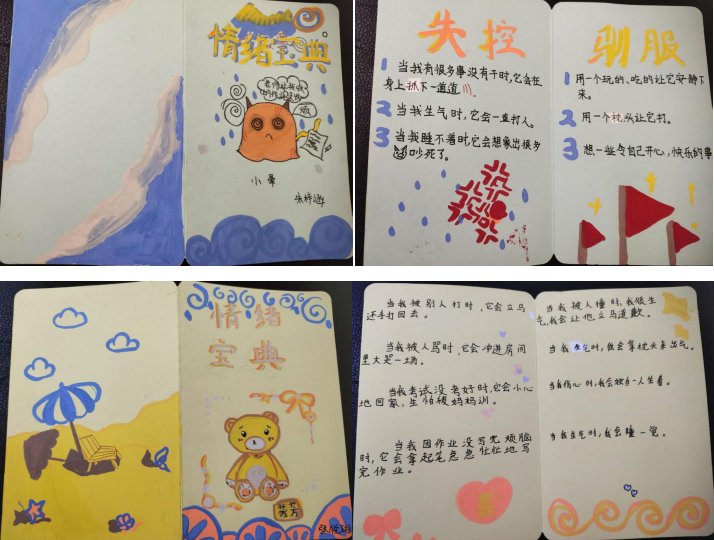 情绪宝典
烦
小晕
失控
1 当我有很多事没有干时,它会在
身上抓下一道道
2 当我生气时,它会一直打人。
3 当我睡不着时,它会想象出很多
吵死了。
驯服
1 用一个玩的、吃的让它安静下
来。
2 用一个枕头让它打。
3 想一些令自己开心,快乐的事
情绪
宝典
当我被别人打时,它会立马
还手打回去。
当我被人骂时,它会冲进房间
里大哭一场。
当我考试没考好时,它会小心
地回家,生怕被妈妈训。
当我因作业没写完烦脑
时,它会拿起笔急急忙忙地写
完作业。
当我被人撞时,我很生
气,我会让他立马道歉。
当我生气时,我会拿枕头来出气。
当我伤心时,我会独自一人坐着。
当我生气时,我会睡一觉。